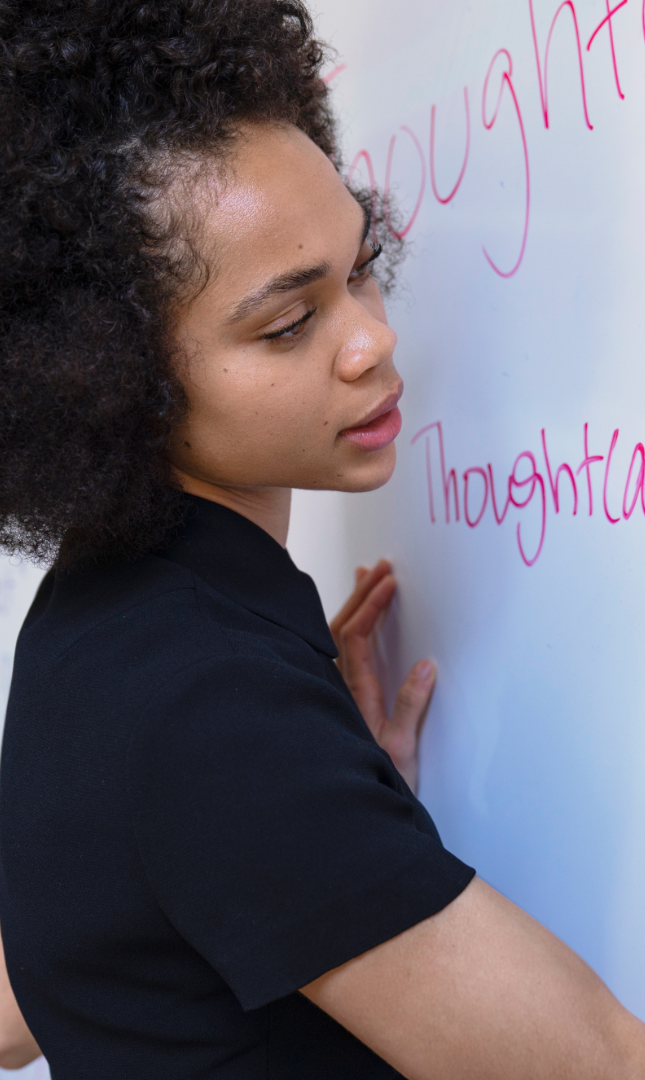 ought
Thoughtca